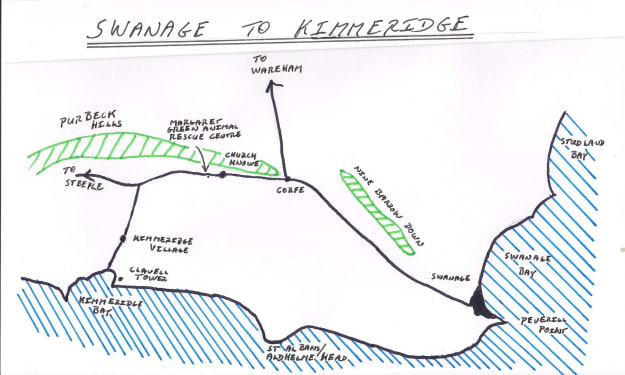 SWANAGE TO KIMMERIDGE
TO
WAREHAM
PURBECK
HILLS
MARGARET
GREEN ANIMAL
RESCUE CENTRE
CHURCH
KNOWLE
STUDLAND
BAY
TO
STEEPLE
CORFE
NINE BARROW DOWN
KIMMERIDGE
VILLAGE
SWANAGE
BAY
SWANAGE
CLAVELL
TOWER
KIMMERIDGE
BAY
PEVERILL
POINT
ST ALBANS/
ALDHELMS/HEAD